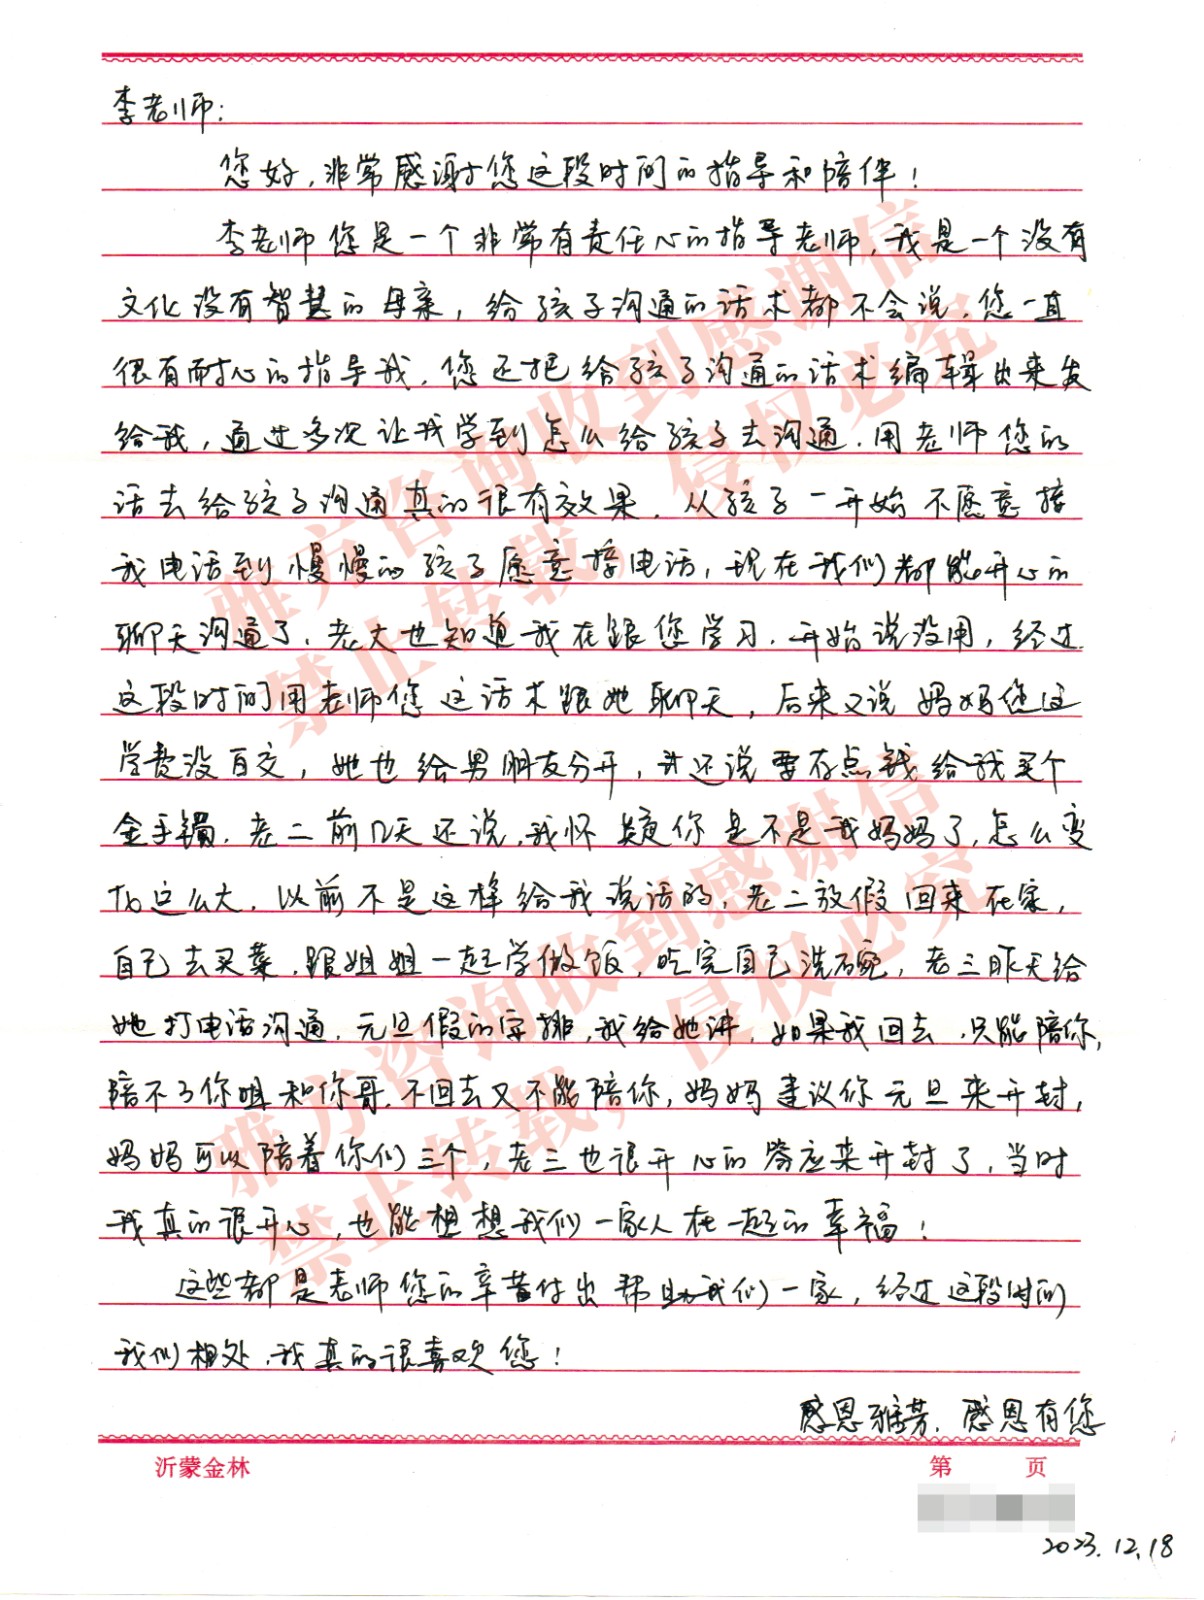 李老师:
您好,非常感谢您这段时间的指导和陪伴!
李老师您是一个非常有责任心的指导老师,我是一个没有
文化没有智慧的母亲,给孩子沟通的话术都不会说.您一直
很有耐心的指导我.您还把给孩子沟通的话术编辑出来发
给我,通过多次让我学到怎么给孩子去沟通.用老师您的
话去给孩子沟通真的很有效果.从孩子一开始不愿意接
我电话到慢慢的孩子愿意接电话,现在我们都能开心的
聊天沟通了.老大也知道我在跟您学习.开始说没用,经过
这段时间用老师您这话术跟她聊天,后来又说妈妈您这
学费没白交,她也给男朋友分开,并还说要存点钱给我买个
金手镯.老二前几天还说,我怀疑你是不是我妈妈了,怎么变
化这么大.以前不是这样给我说话的,老二放假回来在家,
自己去买菜.跟姐姐一起学做饭,吃完自己洗碗,老三昨天给
她打电话沟通.元旦假的安排,我给她讲,如果我回去,只能陪你,
陪不了你姐和你哥.不回去又不能陪你,妈妈建议你元旦来开封,
妈妈可以陪着你们三个,老三也很开心的答应来开封了,当时
我真的很开心,也能想想我们一家人在一起的幸福!
这些都是老师您的辛苦付出帮助我们一家,经过这段时间
我们相处,我真的很喜欢您!
感恩雅芳.感恩有您
沂蒙金林 第 页
2023.12.18
雅方咨询收到感谢信
禁止转载,侵权必究
雅方咨询收到感谢信
禁止转载,侵权必究